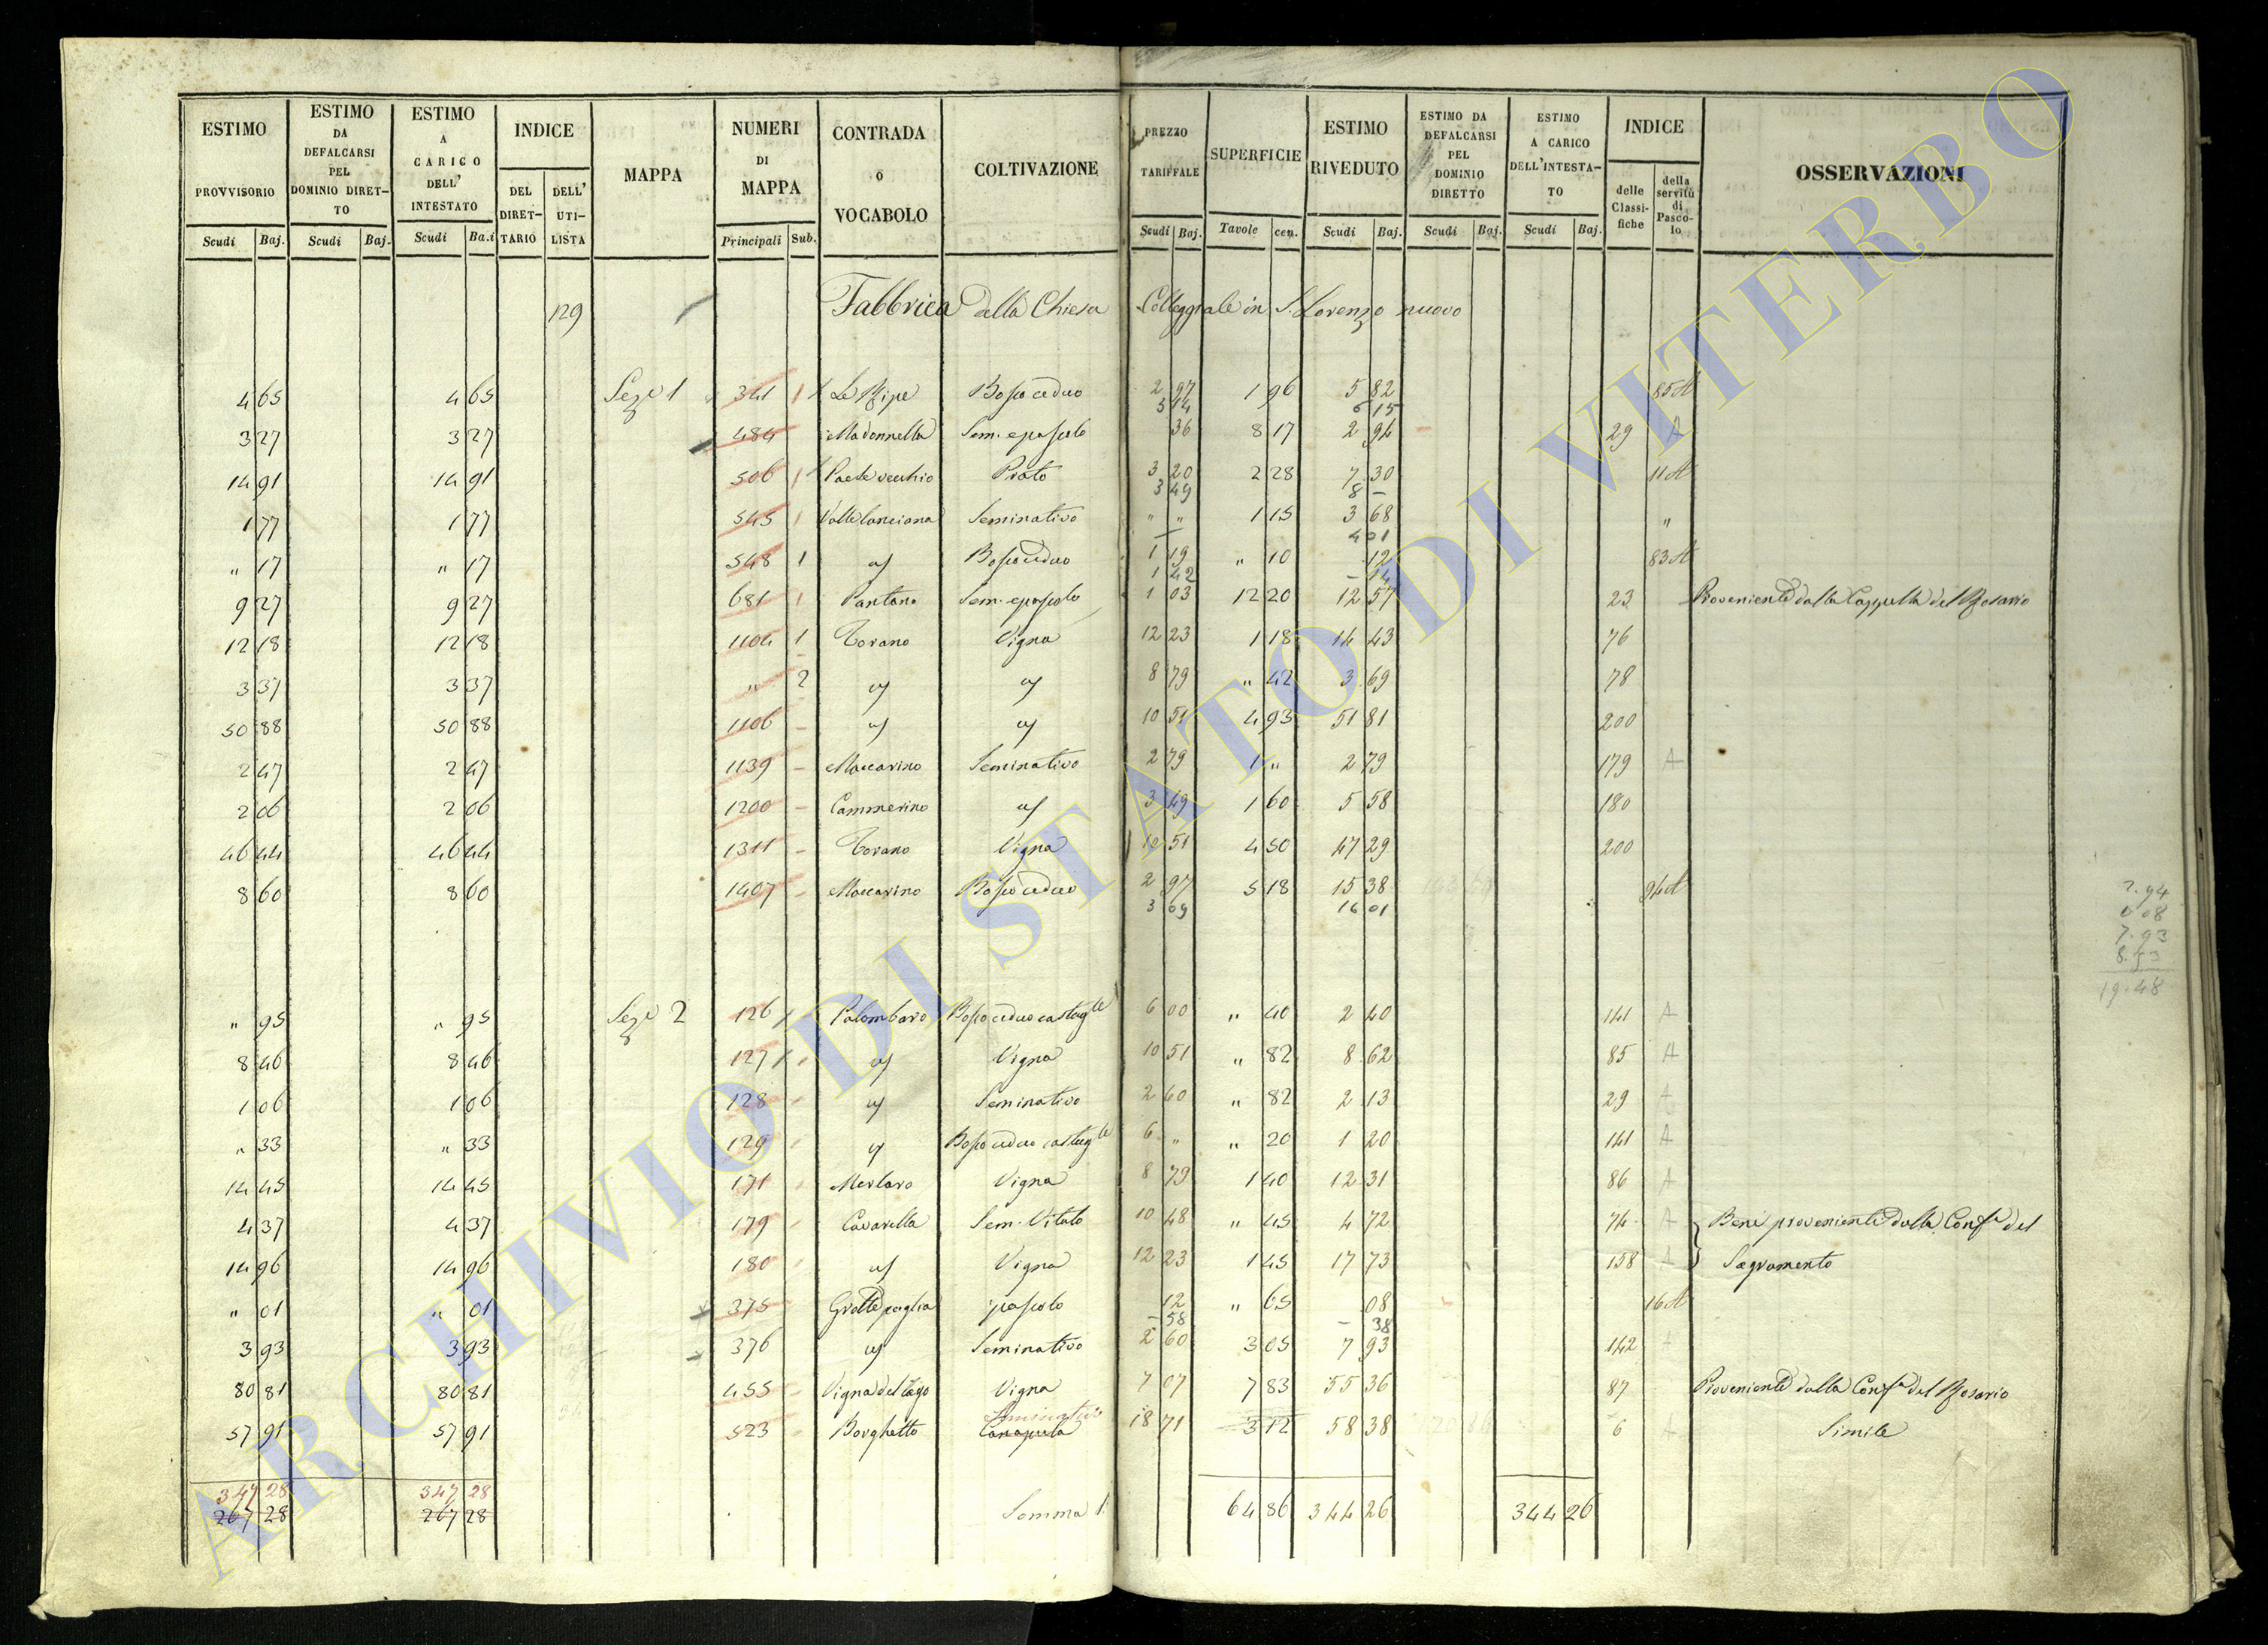 ESTIMO PROVVISORIO Scudi Baj. | ESTIMO DA DEFALCARSI PEL DOMINIO DIRET-TO Scudi Baj. | ESTIMO A CARICO DELL' INTESTATO Scudi Ba.i | INDICE DEL DIRET-TARIO DELL' UTI-LISTA | MAPPA | NUMERI DI MAPPA Principali Sub. | CONTRADA o VOCABOLO | COLTIVAZIONE | PREZZO TARIFFALE Scudi Baj. | SUPERFICIE Tavole cen. | ESTIMO RIVEDUTO Scudi Baj. | ESTIMO DA DEFALCARSI PEL DOMINIO DIRETTO Scudi Baj. | ESTIMO A CARICO DELL'INTESTA-TO Scudi Baj. | INDICE delle Classi-fiche della servitù di Pasco-lo | OSSERVAZIONI
129 Fabbrica della Chiesa Colleggiale in S. Lorenzo nuovo
4 65 4 65 Sez.e 1 341 1 Le Ripe Bosco ceduo 2 97 1 96 5 82 85 A
3 14 6 15
3 27 3 27 484 Madonnella Sem. e pascolo 36 8 17 2 94 29 A
14 91 14 91 506 1 Paese vecchio Prato 3 20 2 28 7 30 11 A
3 49 8 –
1 77 1 77 545 1 Valle lanciana Seminativo " " 1 15 3 68 "
4 01
" 17 " 17 548 1 id Bosco ceduo 1 19 " 10 12 83 A
1 42 – 14
9 27 9 27 681 1 Pantano Sem. e pascolo 1 03 12 20 12 57 23 Proveniente dalla Cappella del Rosario
12 18 12 18 1104 1 Torano Vigna 12 23 1 18 14 43 76
3 37 3 37 " 2 id id 8 79 " 42 3 69 78
50 88 50 88 1106 – id id 10 51 4 93 51 81 200
2 47 2 47 1139 – Maccarino Seminativo 2 79 1 " 2 79 179 A
2 06 2 06 1200 – Cammerino id 3 49 1 60 5 58 180
46 44 46 44 1311 – Torano Vigna 10 51 4 50 47 29 200
8 60 8 60 1407 – Maccarino Bosco ceduo 2 97 5 18 15 38 94 A
3 09 16 01
7.94
0 08
7.93
8.53
19.48
" 95 " 95 Sez.e 2 126 Palombaro Bosco ceduo castag.le 6 00 " 40 2 40 141 A
8 46 8 46 127 id Vigna 10 51 " 82 8 62 85 A
1 06 1 06 128 id Seminativo 2 60 " 82 2 13 29 A
" 33 " 33 129 id Bosco ceduo castag.le 6 " " 20 1 20 141 A
14 45 14 45 171 Merlaro Vigna 8 79 1 40 12 31 86 A
4 37 4 37 179 Cavarella Sem. Vitato 10 48 " 45 4 72 74 A Beni provenienti dalla Conf.a del
14 96 14 96 180 id Vigna 12 23 1 45 17 73 158 A Sagramento
" 01 " 01 375 Grotte paglia pascolo 12 " 65 08 16 A
– 58 – 38
3 93 3 93 376 id Seminativo 2 60 3 05 7 93 142
80 81 80 81 455 Vigna del Lago Vigna 7 07 7 83 55 36 87 Proveniente dalla Conf.a del Rosario
Seminativo
57 91 57 91 523 Borghetto Canapula 18 71 3 12 58 38 6 A Simile
347 28 347 28
267 28 267 28 Somma 1. 64 86 344 26 344 26
ARCHIVIO DI STATO DI VITERBO